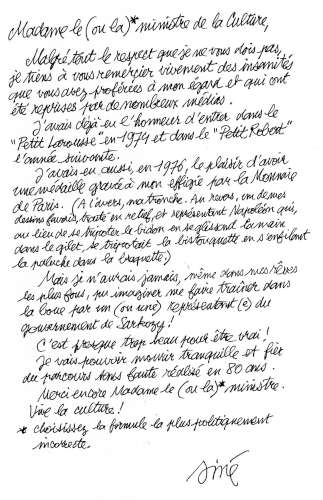 Madame le (ou la)* ministre de la Culture,
Malgré tout le respect que je ne vous dois pas,
je tiens à vous remercier vivement des insanités
que vous avez proférées à mon égard et qui ont
été reprises par de nombreux médias.
J'avais déjà eu l'honneur d'entrer dans le
"Petit Larousse" en 1974 et dans le "Petit Robert"
l'année suivante.
J'avais eu, aussi, en 1976, le plaisir d'avoir
une médaille gravée à mon effigie par la Monnaie
de Paris. (A l'avers, ma tronche. Au revers, un de mes
dessins favoris, traité en relief, et représentant Napoléon qui,
au lieu de se tripoter le bidon en se glissant la main
dans le gilet, se tripotait la bistouquette en s'enfilant
la paluche dans la braguette.)
Mais je n'aurais jamais, même dans mes rêves
les plus fous, pu imaginer me faire traîner dans
la boue par un (ou une) représentant(e) du
gouvernement de Sarkozy!
C'est presque trop beau pour être vrai!
Je vais pouvoir mourir tranquille et fier
du parcours sans faute réalisé en 80 ans.
Merci encore Madame le (ou la)* ministre.
Vive la culture!
* choisissez la formule la plus politiquement
incorrecte.
Siné